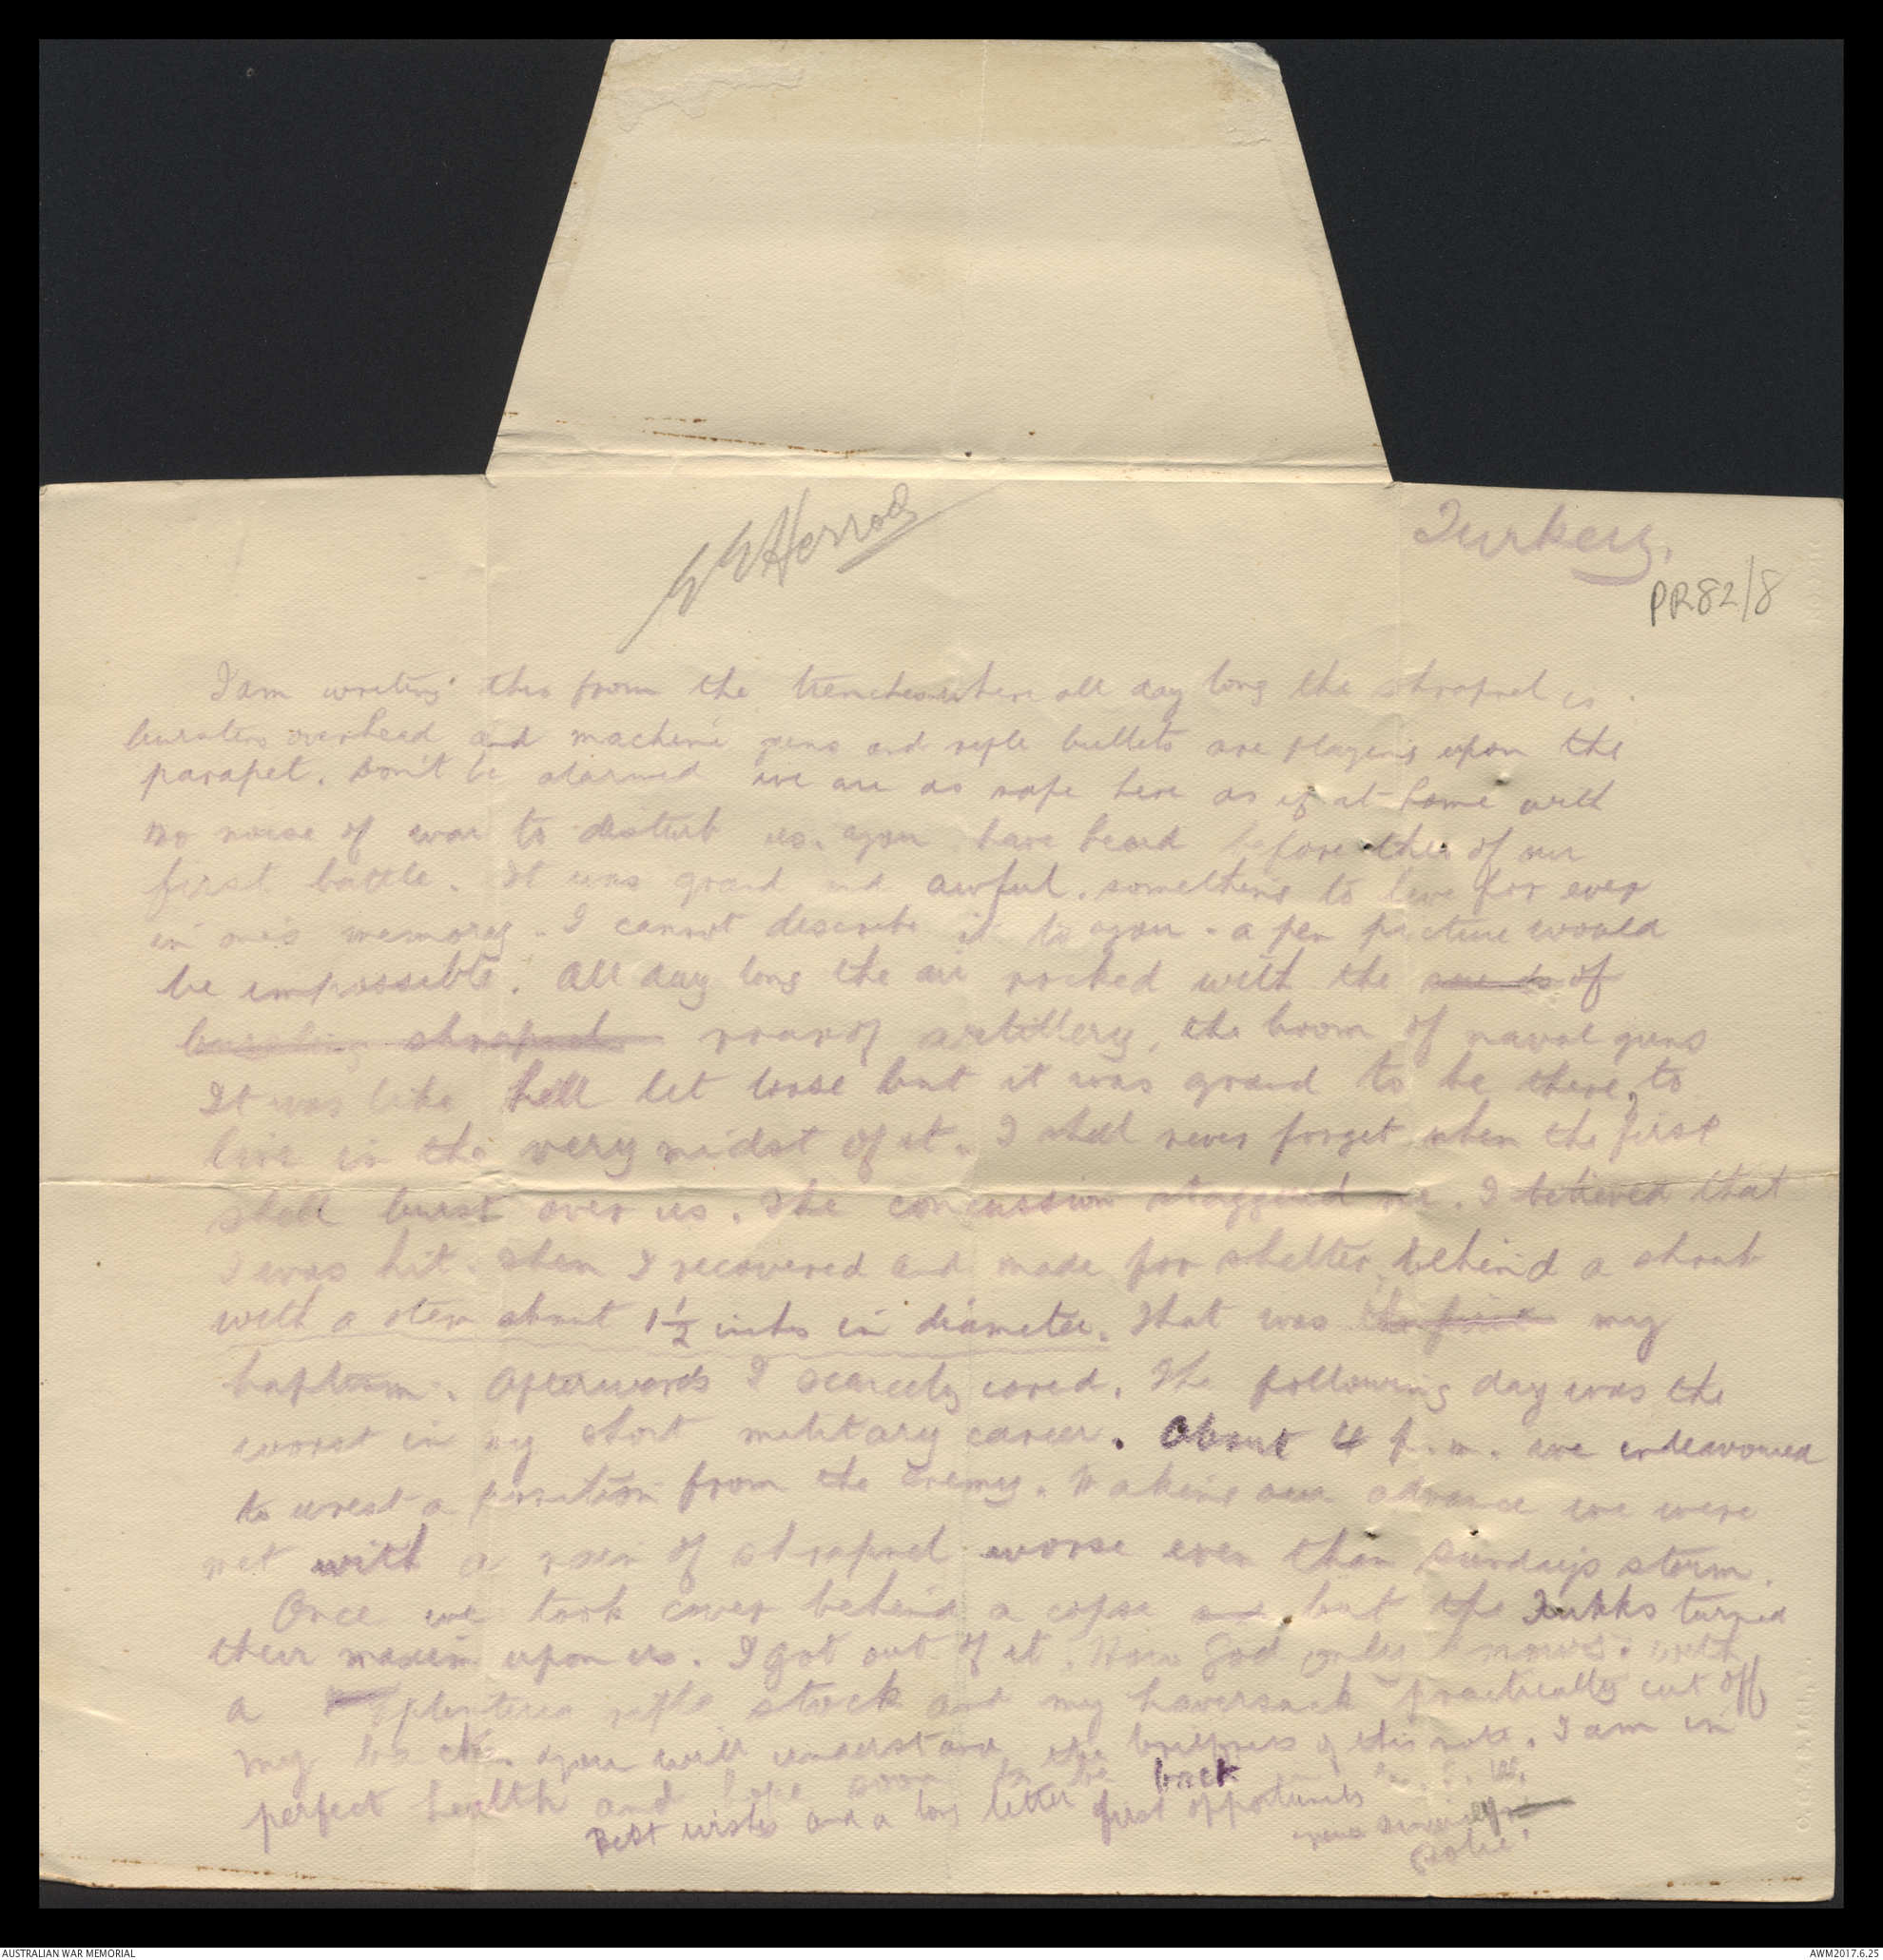 Turkey,
PR82/8
I am writing this from the trenches where all day long the shrapnel is
bursting overhead and machine guns and rifle bullets are playing upon the
parapet. Don't be alarmed we are as safe here as if at home with
no noise of war to disturb us. You have heard before this of our
first battle. It was grand and awful. something to live for ever
in one's memory. I cannot describe it to you - a pen picture would
be impossible. All day long the air rocked with the sounds of
bursting shrapnel roar of artillery, the boom of naval guns
It was like hell let loose but it was grand to be there, to
live in the very midst of it. I shall never forget when the first
shell burst over us. The concussion staggered me. I believed that
I was hit. Then I recovered and made for shelter behind a shrub
with a stem about 1½ inches in diameter. That was the first my
baptism. Afterwards I scarcely cared. The following day was the
worst in my short military career. About 4 p.m. we endeavoured
to wrest a position from the enemy. Making our advance we were
met with a rain of shrapnel worse even than Sunday's storm.
Once we took cover behind a copse and but the Turks turned
their maxim upon us. I got out of it. How God only knows. with
a splintered rifle stock and my haversack practically cut off
my back. You will understand the briefness of this note. I am in
perfect health and hope soon to be back
Best wishes and a long letter first opportunity
yours sincerely